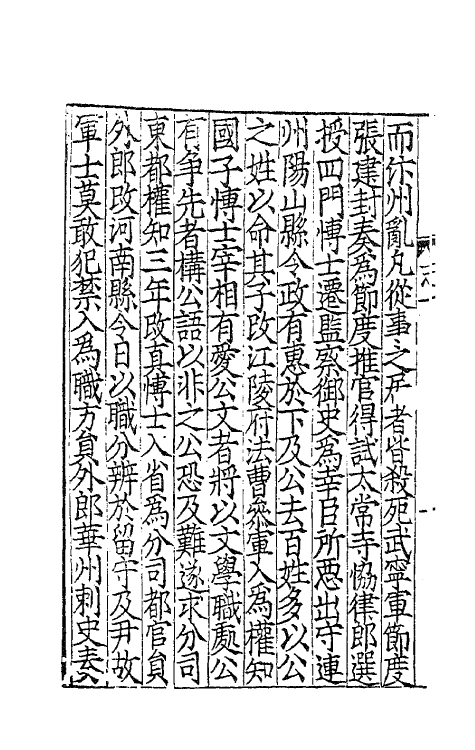 而汴州亂凡從事之居者皆殺死武寧軍節度
張建封奏為節度推官得試太常寺恊律郎選
授四門愽士遷監察御史為幸臣所惡出守連
州陽山縣令政有惠於下及公去百姓多以公
之姓以命其子改江陵府法曹叅軍入為權知
國子愽士宰相有愛公文者將以文學職處公
有争先者構公語以非之公恐及難遂求分司
東都權知三年改真愽士入省為分司都官員
外郎改河南縣令日以職分辨於留守及尹故
軍士莫敢犯禁入為職方員外郎華州刺史奏